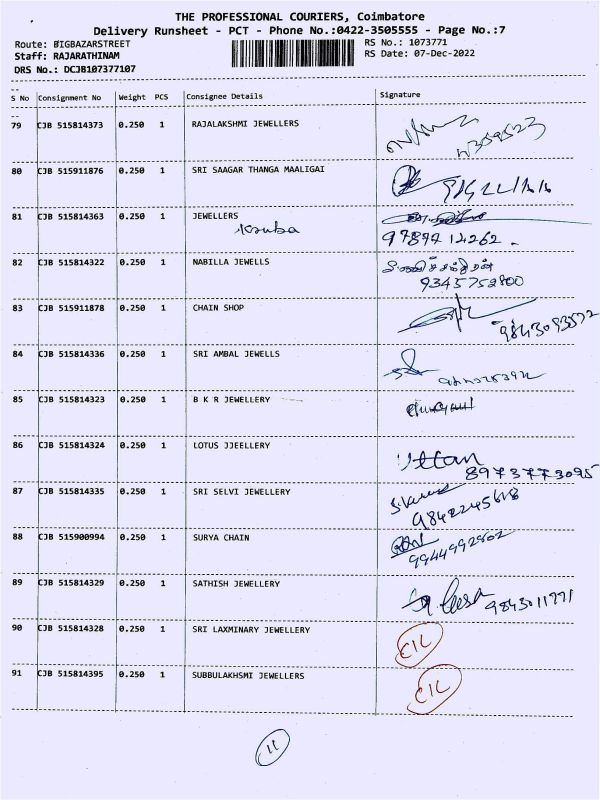 THE PROFESSIONAL COURIERS, Coimbatore
Delivery Runsheet - PCT - Phone No.:0422-3505555 - Page No.:7
Route: BIGBAZARSTREET RS No.: 1073771
Staff: RAJARATHINAM RS Date: 07-Dec-2022
DRS No.: DCJB107377107
S No Consignment No Weight PCS Consignee Details Signature
79 CJB 515814373 0.250 1 RAJALAKSHMI JEWELLERS
80 CJB 515911876 0.250 1 SRI SAAGAR THANGA MAALIGAI
81 CJB 515814363 0.250 1 JEWELLERS
Kruba 9789412262
82 CJB 515814322 0.250 1 NABILLA JEWELLS
9345752800
83 CJB 515911878 0.250 1 CHAIN SHOP
9843093572
84 CJB 515814336 0.250 1 SRI AMBAL JEWELLS
85 CJB 515814323 0.250 1 B K R JEWELLERY
86 CJB 515814324 0.250 1 LOTUS JJEELLERY
Uttam
8973773095
87 CJB 515814335 0.250 1 SRI SELVI JEWELLERY
9842245618
88 CJB 515900994 0.250 1 SURYA CHAIN
9944992802
89 CJB 515814329 0.250 1 SATHISH JEWELLERY
9843011771
90 CJB 515814328 0.250 1 SRI LAXMINARY JEWELLERY
CIL
91 CJB 515814395 0.250 1 SUBBULAKHSMI JEWELLERS
CIL
11